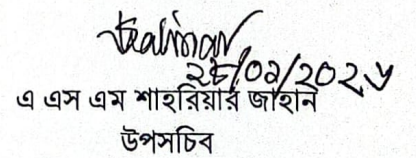 ২৫/০২/২০২৬
এ এস এম শাহরিয়ার জাহান
উপসচিব